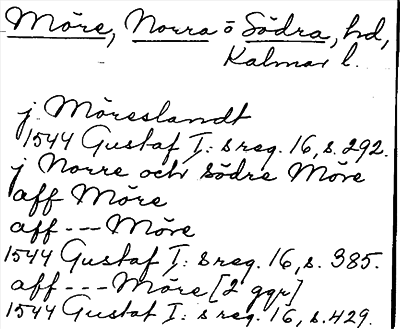 Möre, Norra o Södra, hd,
Kalmar l.
j Möreslandt
1544 Gustaf I: s reg. 16, s. 292.
j Norre och södre Möre
aff Möre
aff --- Möre
1544 Gustaf I: s reg. 16, s. 385.
aff --- Möre [2 ggr]
1544 Gustaf I: s reg. 16, s. 429.